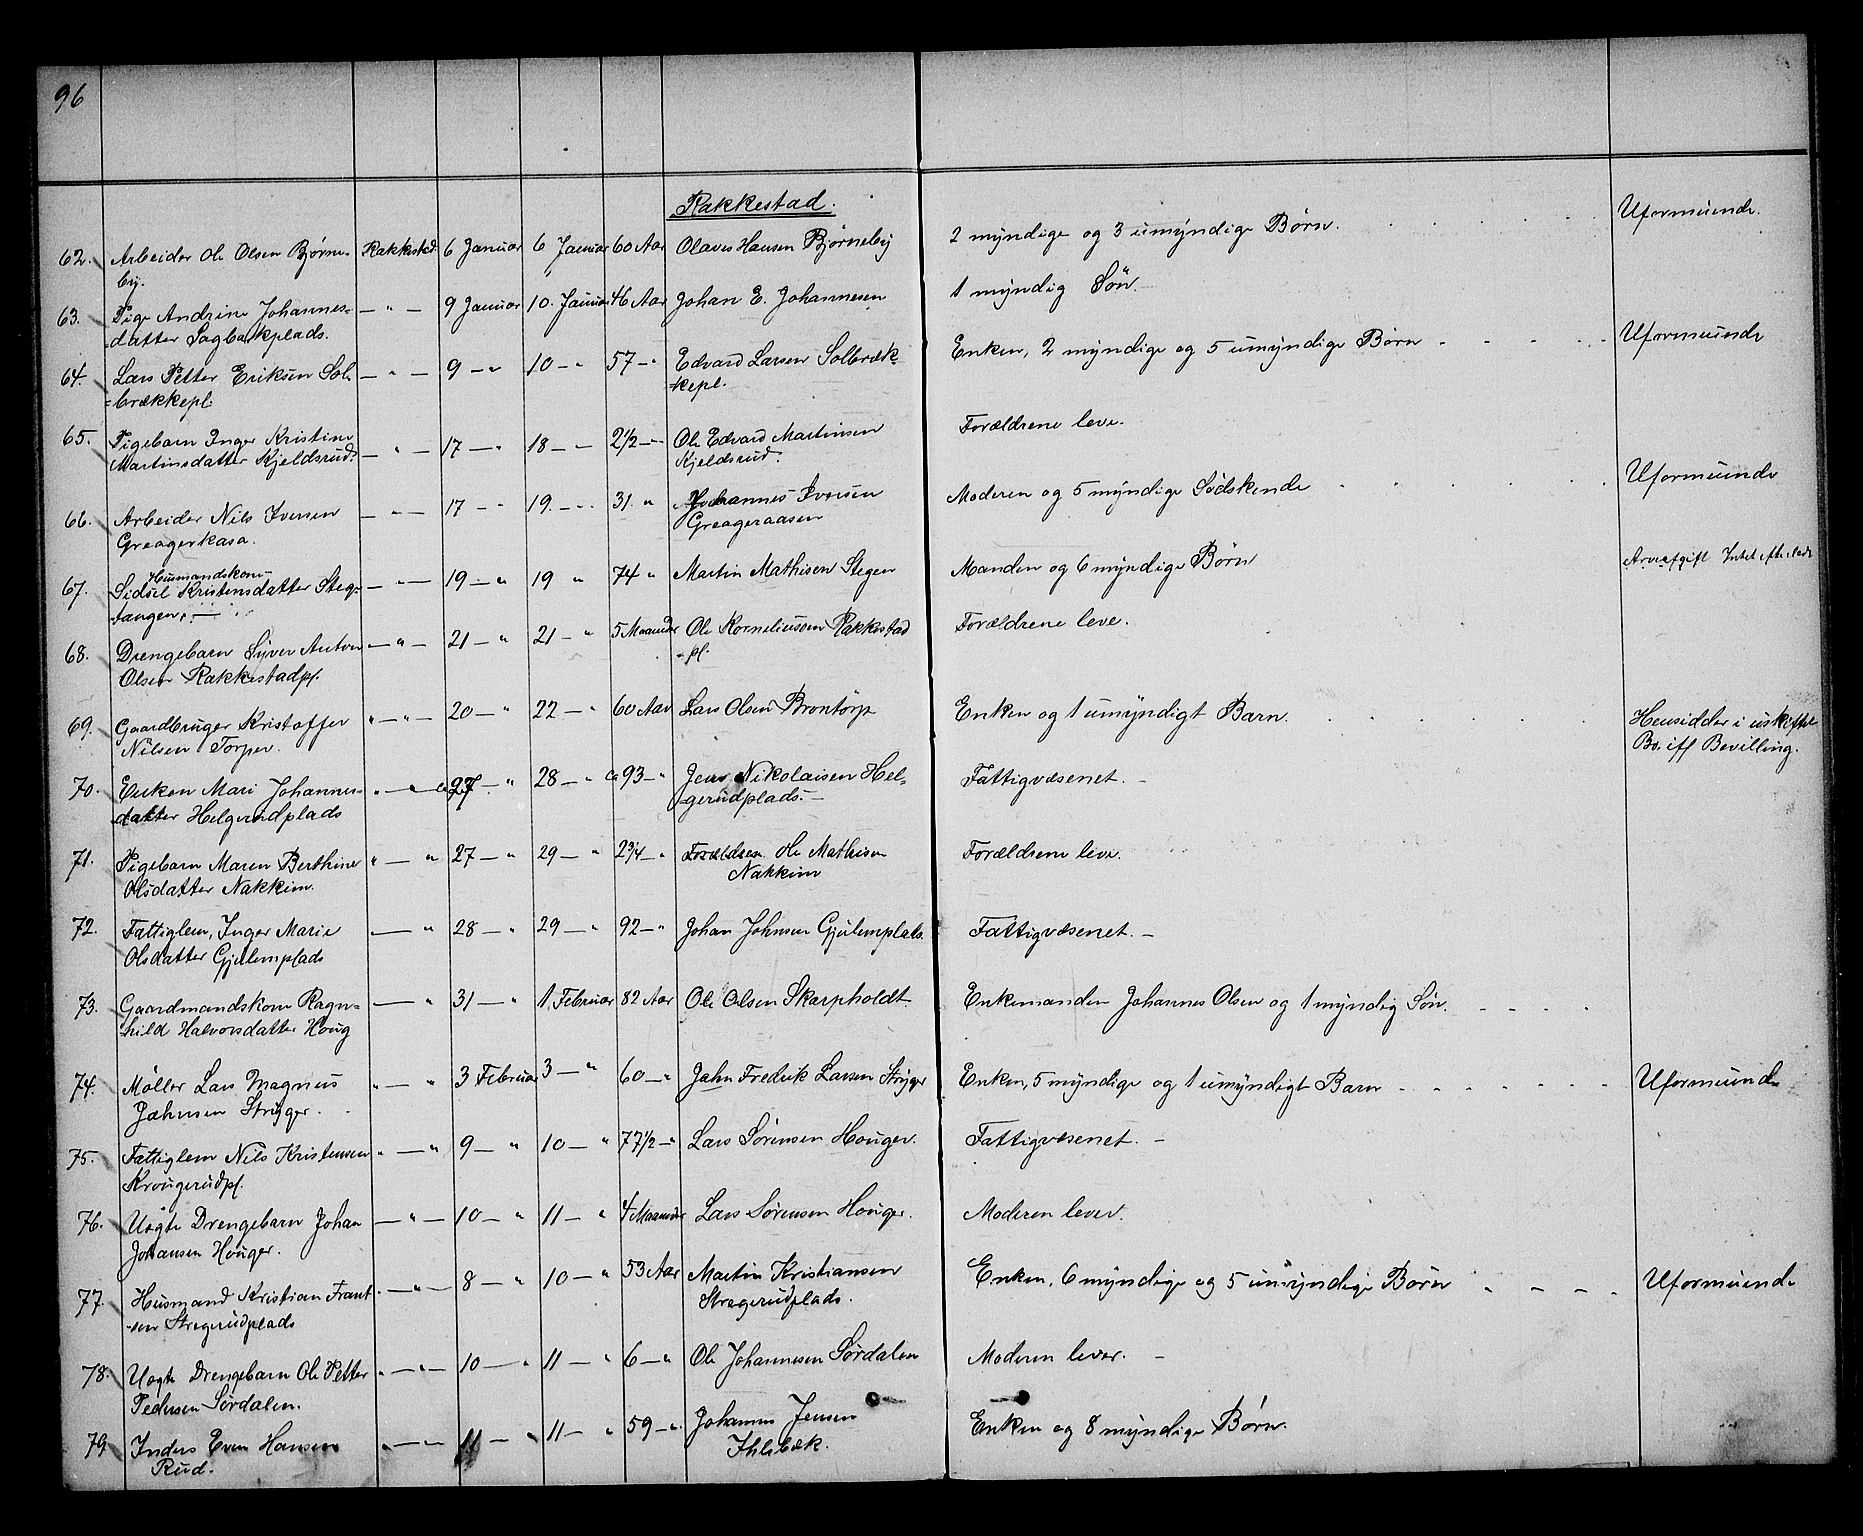 96
Rakkestad.
62. Arbeider Ole Olsen Bjørne- Rakkestad 6 Januar 6 Januar 60 Aar Olaves Hansen Bjørneby 2 myndige og 3 umyndige Børn. Uformuende.
by.
63. Pige Andrine Johannes- — " — 9 Januar 10. Januar 46 Aar Johan E. Johannesen 1 myndig Søn.
datter Sagbakplads.
64. Lars Petter Eriksen Sol- — " — 9 — " 10 — " 57 — " Edvard Larsen Solbræk- Enken, 2 myndige og 5 umyndige Børn Uformuende
brækkepl. kepl.
65. Pigebarn Inger Kristine — " — 17 — " 18 — 2 1/2 — Ole Edvard Martinsen Forældrene leve.
Martinsdatter Kjeldsrud. Kjeldsrud.
66. Arbeider Nils Iversen — " — 17 — " 19. — " 31. " Johannes Iversen Moderen og 5 myndige Sødskende Uformuende
Greagerkasa. Greageraasen
Husmandskone
67. Sidsel Kristensdatter Steg- — " — 19 — " 19 " 74 " Martin Mathisen Stegen Manden og 6 myndige Børn Arveafgift Intet efterladt
tangen.
68. Drengebarn Syver Anton — " — 21 — " 21 — " 5 Maaneder Ole Korneliussen Rakkestad Forældrene leve.
Olsen Rakkestadpl. pl.
69. Gaardbruger Kristoffer " — " — 20 — " 22 — " 60 Aar Lars Olsen Brontorp Enken og 1 umyndigt Barn. Hensidder i uskiftet
Nilsen Torper. Bo. iflf Bevilling.
70. Enken Mari Johannes- " — " 27 — " 28 — " ca 93 — " Jens Nikolaisen Hel- Fattigvæsenet. —
datter Helgerudplads gerudplads. —
71. Pigebarn Maren Berthine " — " 27 — " 29 — " 2 3/4 — " Forældren Ole Mathisen Forældrene leve.
Olsdatter Nakkim. Nakkim
72. Fattiglem, Inger Marie — " 28 — " 29 — " 92 — " Johan Johnsen Gjulemplads. Fattigvæsenet. —
Olsdatter Gjulemplads
73. Gaardmandskone Ragn- — " 31 — " 1. Februar 82 Aar Ole Olsen Skarpholdt Enkemanden Johannes Olsen og 1 myndig Søn.
hild Halvorsdatter Houg
74. Møller Lars Magnus " — " 3 Februar 3 — " 60 — " Jahn Fredrik Larsen Stryger Enken, 5 myndige og 1 umyndigt Barn Uformuende
Jahnsen Strygger.
75. Fattiglem Nils Kristensen " — " 9 — " 10 — " 77 1/2 — " Lars Sørensen Houger. Fattigvæsenet. —
Krougerudpl.
76. Uægte Drengebarn Johan — " — 10 — " 11 — " 4 Maaneder Lars Sørensen Houger. Moderen lever.
Johansen Houger.
77. Husmand Kristian Frant- " — " — 8 — " 10 — " 53 Aar Martin Kristiansen Enken, 6 myndige og 5 umyndige Børn Uformuende
sen Stregerudplads Stregerudplads.
78. Uægte Drengebarn Ole Petter " — " — 10 — " 11 — " 6 — " Ole Johannesen Sørdalen Moderen lever. —
Pedersen Sørdalen.
79 Inders Even Hansen " — " — 11 — " 11 — " 59 — " Johannes Jensen Enken og 8 myndige Børn.
Rud. Ihlebæk.